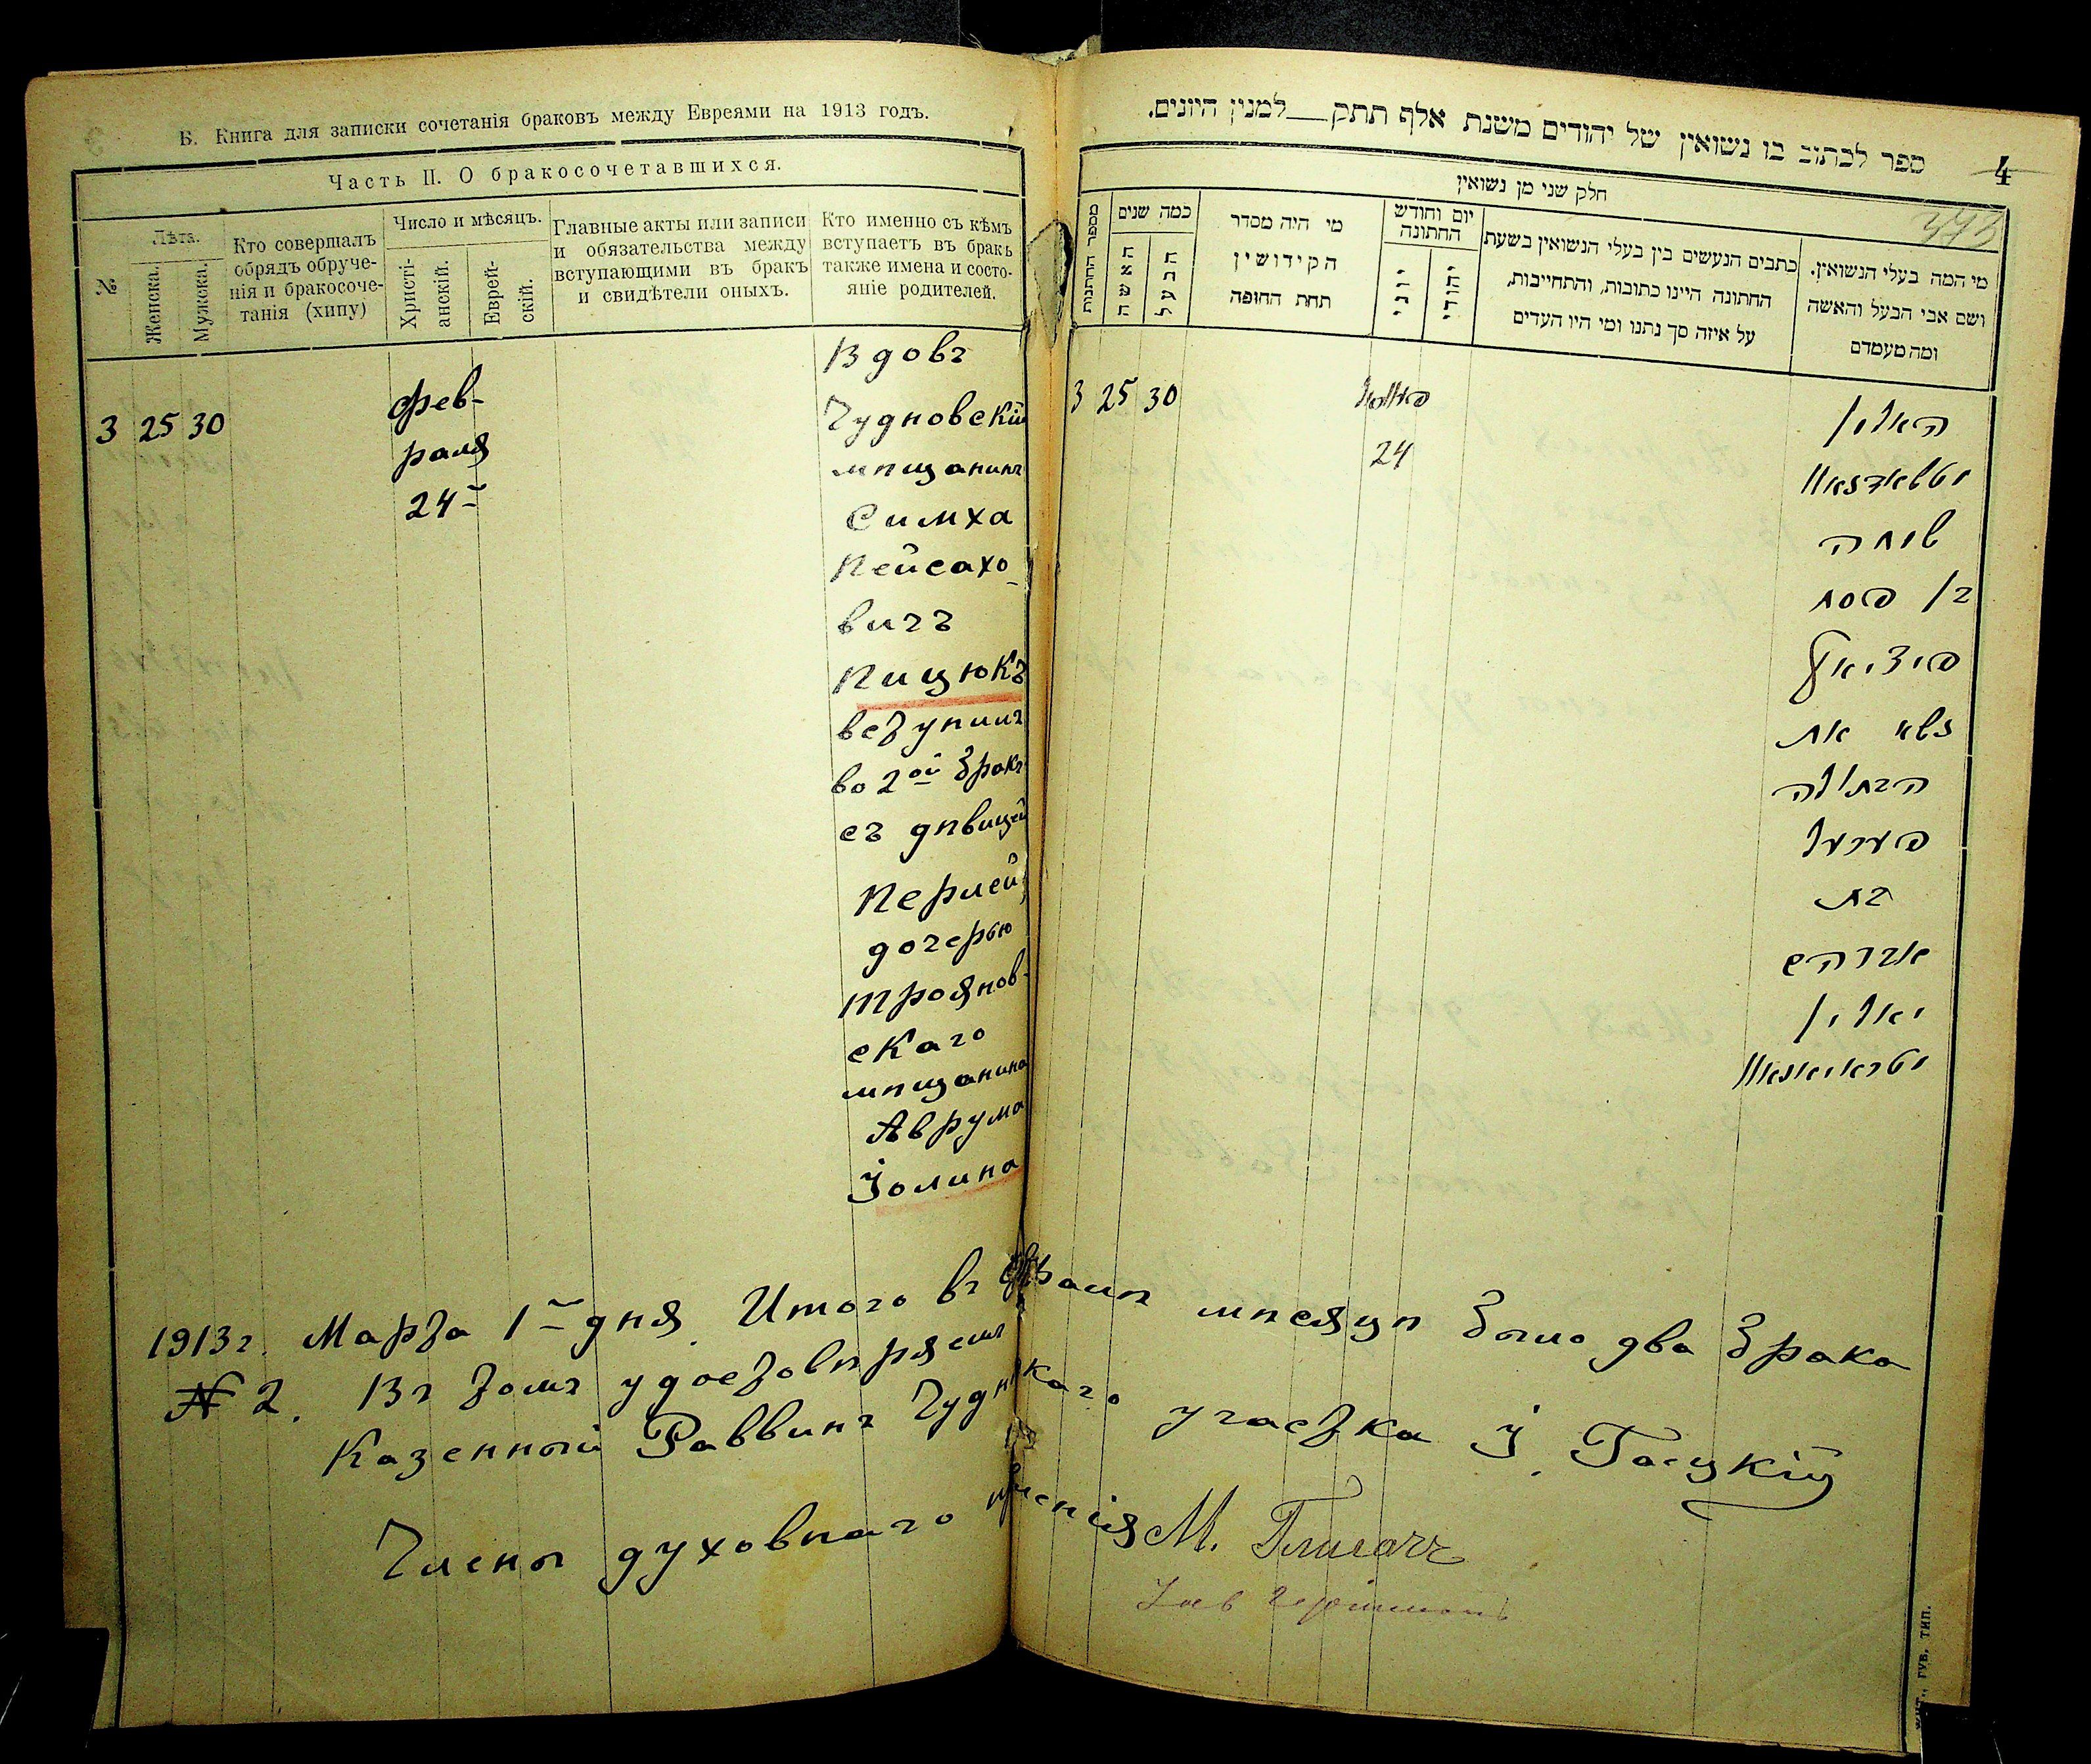 Б. Книга для записки сочетанія браковъ между Евреями на 1913 годъ.
Часть II. О бракосочетавшихся.
№
Лѣта.
Женска.
Мужска.
Кто совершалъ
обрядъ обруче-
нія и бракосоче-
танія (хипу)
Число и мѣсяцъ.
Христі-
анскій.
Еврей-
скій.
Главные акты или записи
и обязательства между
вступающими въ бракъ
и свидѣтели оныхъ.
Кто именно съ кѣмъ
вступаетъ въ бракъ
также имена и состо-
яніе родителей.
3 25 30
фев-
раля
24
Вдовъ
Чудновскій
мѣщанинъ
Симха
Пейсахо-
вичъ
Пицюкъ
вступилъ
во 2ой бракъ
съ дѣвицей
Перлей,
дочерью
трояновс-
каго
мѣщанина
Аврума
Іолина
ספר לכתוב בו נשואין של יהודים משנת אלף תתק__למנין היונים.
4
חלק שני מן נשואין
מספר החתנות
כמה שנים
האשה
הבעל
מי היה מסדר
הקידושין
תחת החופה
יום וחודש
החתונה
יוני
יהודי
כתבים הנעשים בין בעלי הנשואין בשעת
החתונה היינו כתובות, והתחייבות,
על איזה סך נתנו ומי היו העדים
מי המה בעלי הנשואין.
ושם אבי הבעל והאשה
ומה מעמדם
3 25 30
24
האלמן
שמחה
בן פסח
פיציוק
נשא את
הבתולה
פערעל
בת
אברהם
יאלין
1913г. Марта 1 дня Итого въ мѣсяцѣ было два брака
№ 2. Въ томъ удостовѣряемъ
Казенный Раввинъ участка І. Гацкій
Члены духовнаго правленія М.